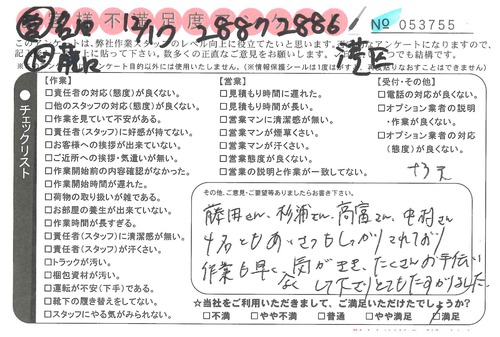 お客様不満足度アンケート
12/17 28872886
No 053755
港区
このアンケートは、弊社作業スタッフのレベル向上に役立てたいと思います。
数多くの正直なご意見をお聞かせ下さい。
※アンケート目的以外には使用いたしません。(※情報保護シールは1度はがすと
チェックリスト
【作業】
□責任者の対応(態度)が良くない。
□他のスタッフの対応(態度)が良くない。
□作業を見ていて不安がある。
□責任者(スタッフ)に好感が持てない。
□お客様への挨拶が出来ていない。
□ご近所への挨拶・気遣いが無い。
□作業開始前の内容確認がなかった。
□作業開始時間が遅れた。
□荷物の取り扱いが雑である。
□お部屋の養生が出来ていない。
□作業時間が長すぎる。
□責任者(スタッフ)に清潔感が無い。
□責任者(スタッフ)が汗くさい。
□トラックが汚い。
□梱包資材が汚い。
□運転が不安(下手)である。
□靴下の履き替えをしてない。
□スタッフにやる気がみられない。
【営業】
□見積もり時間に遅れた。
□見積もり時間が長い。
□営業マンに清潔感が無い。
□営業マンが煙草くさい。
□営業マンが汗くさい。
□営業態度が良くない。
□営業の説明と作業が一致してない。
【受付・その他】
□電話の対応が良くない。
□オプション業者の説明
・作業が良くない。
□オプション業者の対応
(態度)が良くない。
その他、ご意見・ご要望等ありましたらお書き下さい。
藤田さん、杉浦さん、高富さん、中村さん
4名ともあいさつもしっかりされており
作業も早く、気が
たくさんお手伝い
して下さりとてもたすかりました。
☆当社をご利用いただきまして、ご満足いただけたでしょうか?
□不満 □やや不満 □普通 □やや満足 □満足